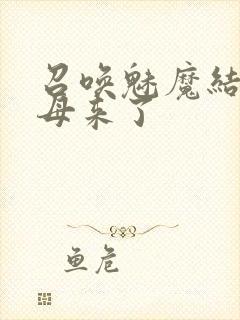 召唤魅魔结
母来了
鱼危